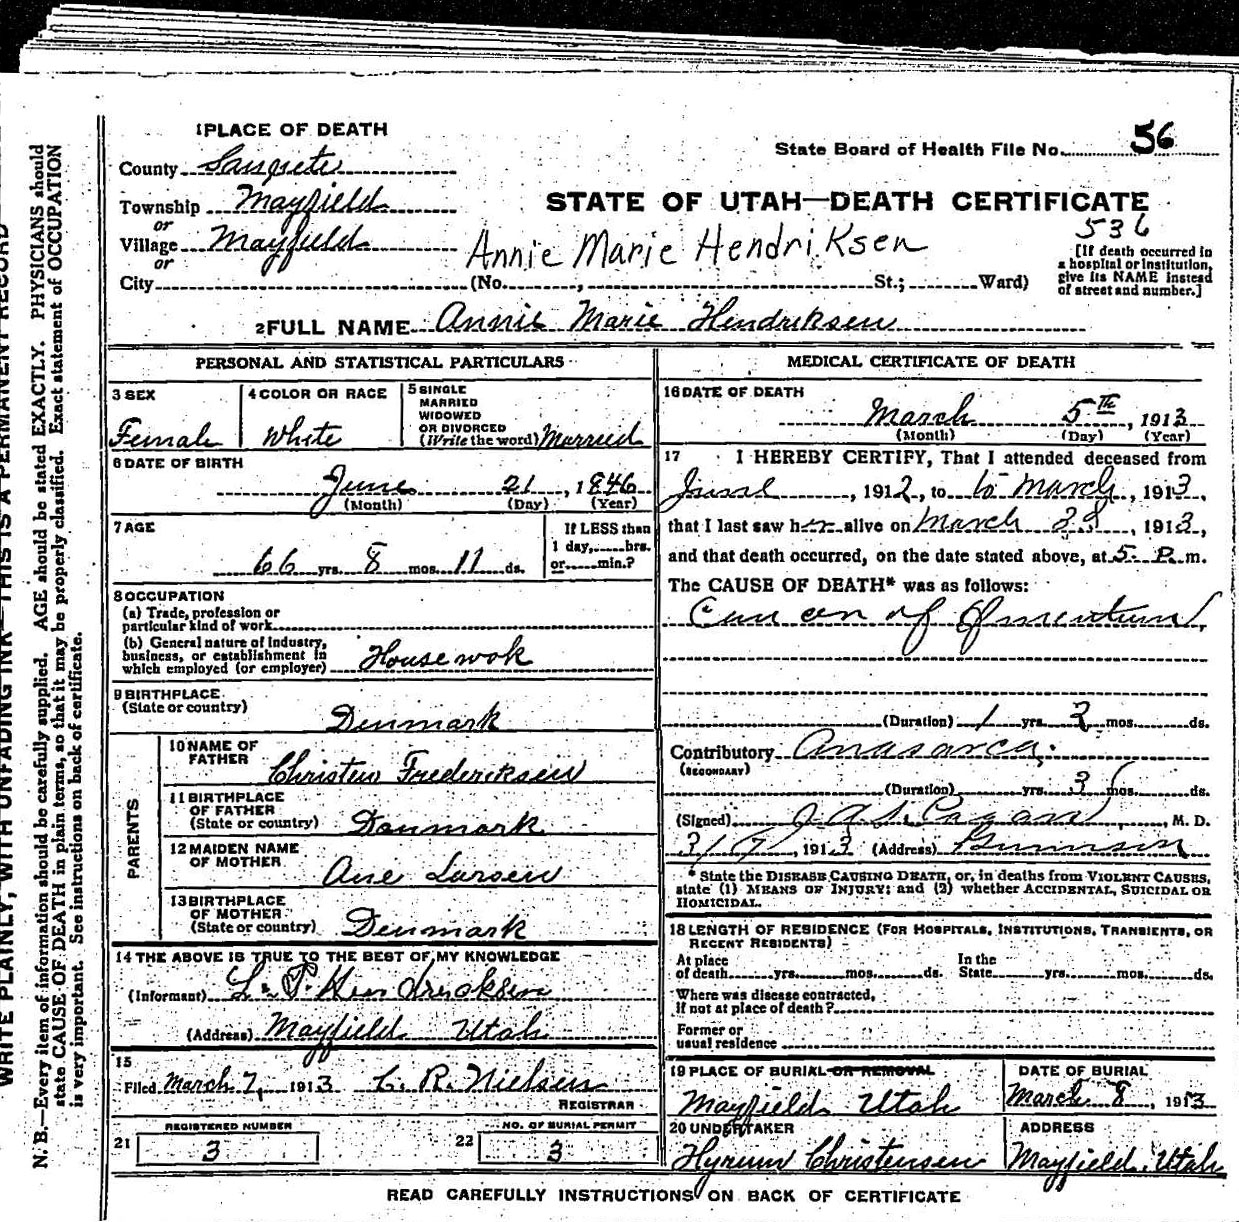 1 PLACE OF DEATH
State Board of Health File No. 56
County Sanpete
Township Mayfield
or
Village Mayfield
or
City
STATE OF UTAH—DEATH CERTIFICATE
536
Annie Marie Hendriksen
(No. , St.; Ward)
[If death occurred in
a hospital or institution,
give its NAME instead
of street and number.]
2 FULL NAME Annie Marie Hendriksen
PERSONAL AND STATISTICAL PARTICULARS
3 SEX
Female
4 COLOR OR RACE
White
5 SINGLE
MARRIED
WIDOWED
OR DIVORCED
(Write the word) Married
6 DATE OF BIRTH
June 21, 1846
(Month) (Day) (Year)
7 AGE
66 yrs. 8 mos. 11 ds.
If LESS than
1 day, hrs.
or min.?
8 OCCUPATION
(a) Trade, profession or
particular kind of work
(b) General nature of industry,
business, or establishment in
which employed (or employer) Housewok
9 BIRTHPLACE
(State or country)
Denmark
PARENTS
10 NAME OF
FATHER
Christen Fredericksen
11 BIRTHPLACE
OF FATHER
(State or country) Danmark
12 MAIDEN NAME
OF MOTHER
Ane Larsen
13 BIRTHPLACE
OF MOTHER
(State or country) Denmark
14 THE ABOVE IS TRUE TO THE BEST OF MY KNOWLEDGE
(Informant) L. P. Hendricksen
(Address) Mayfield Utah
15
Filed March 7, 1913 C. R. Nielsen
REGISTRAR
21 REGISTERED NUMBER
3
22 NO. OF BURIAL PERMIT
3
MEDICAL CERTIFICATE OF DEATH
16 DATE OF DEATH
March 5th, 1913
(Month) (Day) (Year)
17 I HEREBY CERTIFY, That I attended deceased from
, 1912, to March, 1913,
that I last saw her alive on March , 1913,
and that death occurred, on the date stated above, at 5 P. m.
The CAUSE OF DEATH* was as follows:
Cancer of Omentum,
(Duration) 1 yrs. mos. ds.
Contributory Anasarca,
(SECONDARY)
(Duration) yrs. 3 mos. ds.
(Signed) , M. D.
3/7/, 1913 (Address) Gunnison
* State the DISEASE CAUSING DEATH, or, in deaths from VIOLENT CAUSES,
state (1) MEANS OF INJURY; and (2) whether ACCIDENTAL, SUICIDAL OR
HOMICIDAL.
18 LENGTH OF RESIDENCE (FOR HOSPITALS, INSTITUTIONS, TRANSIENTS, OR
RECENT RESIDENTS)
At place
of death yrs. mos. ds.
In the
State yrs. mos. ds.
Where was disease contracted,
if not at place of death?
Former or
usual residence
19 PLACE OF BURIAL OR REMOVAL
Mayfield Utah
DATE OF BURIAL
March 8, 1913
20 UNDERTAKER
Hyrum Christensen
ADDRESS
Mayfield, Utah
READ CAREFULLY INSTRUCTIONS ON BACK OF CERTIFICATE
WRITE PLAINLY, WITH UNFADING INK—THIS IS A PERMANENT RECORD
N. B.—Every item of information should be carefully supplied. AGE should be stated EXACTLY. PHYSICIANS should
state CAUSE OF DEATH in plain terms, so that it may be properly classified. Exact statement of OCCUPATION
is very important. See instructions on back of certificate.